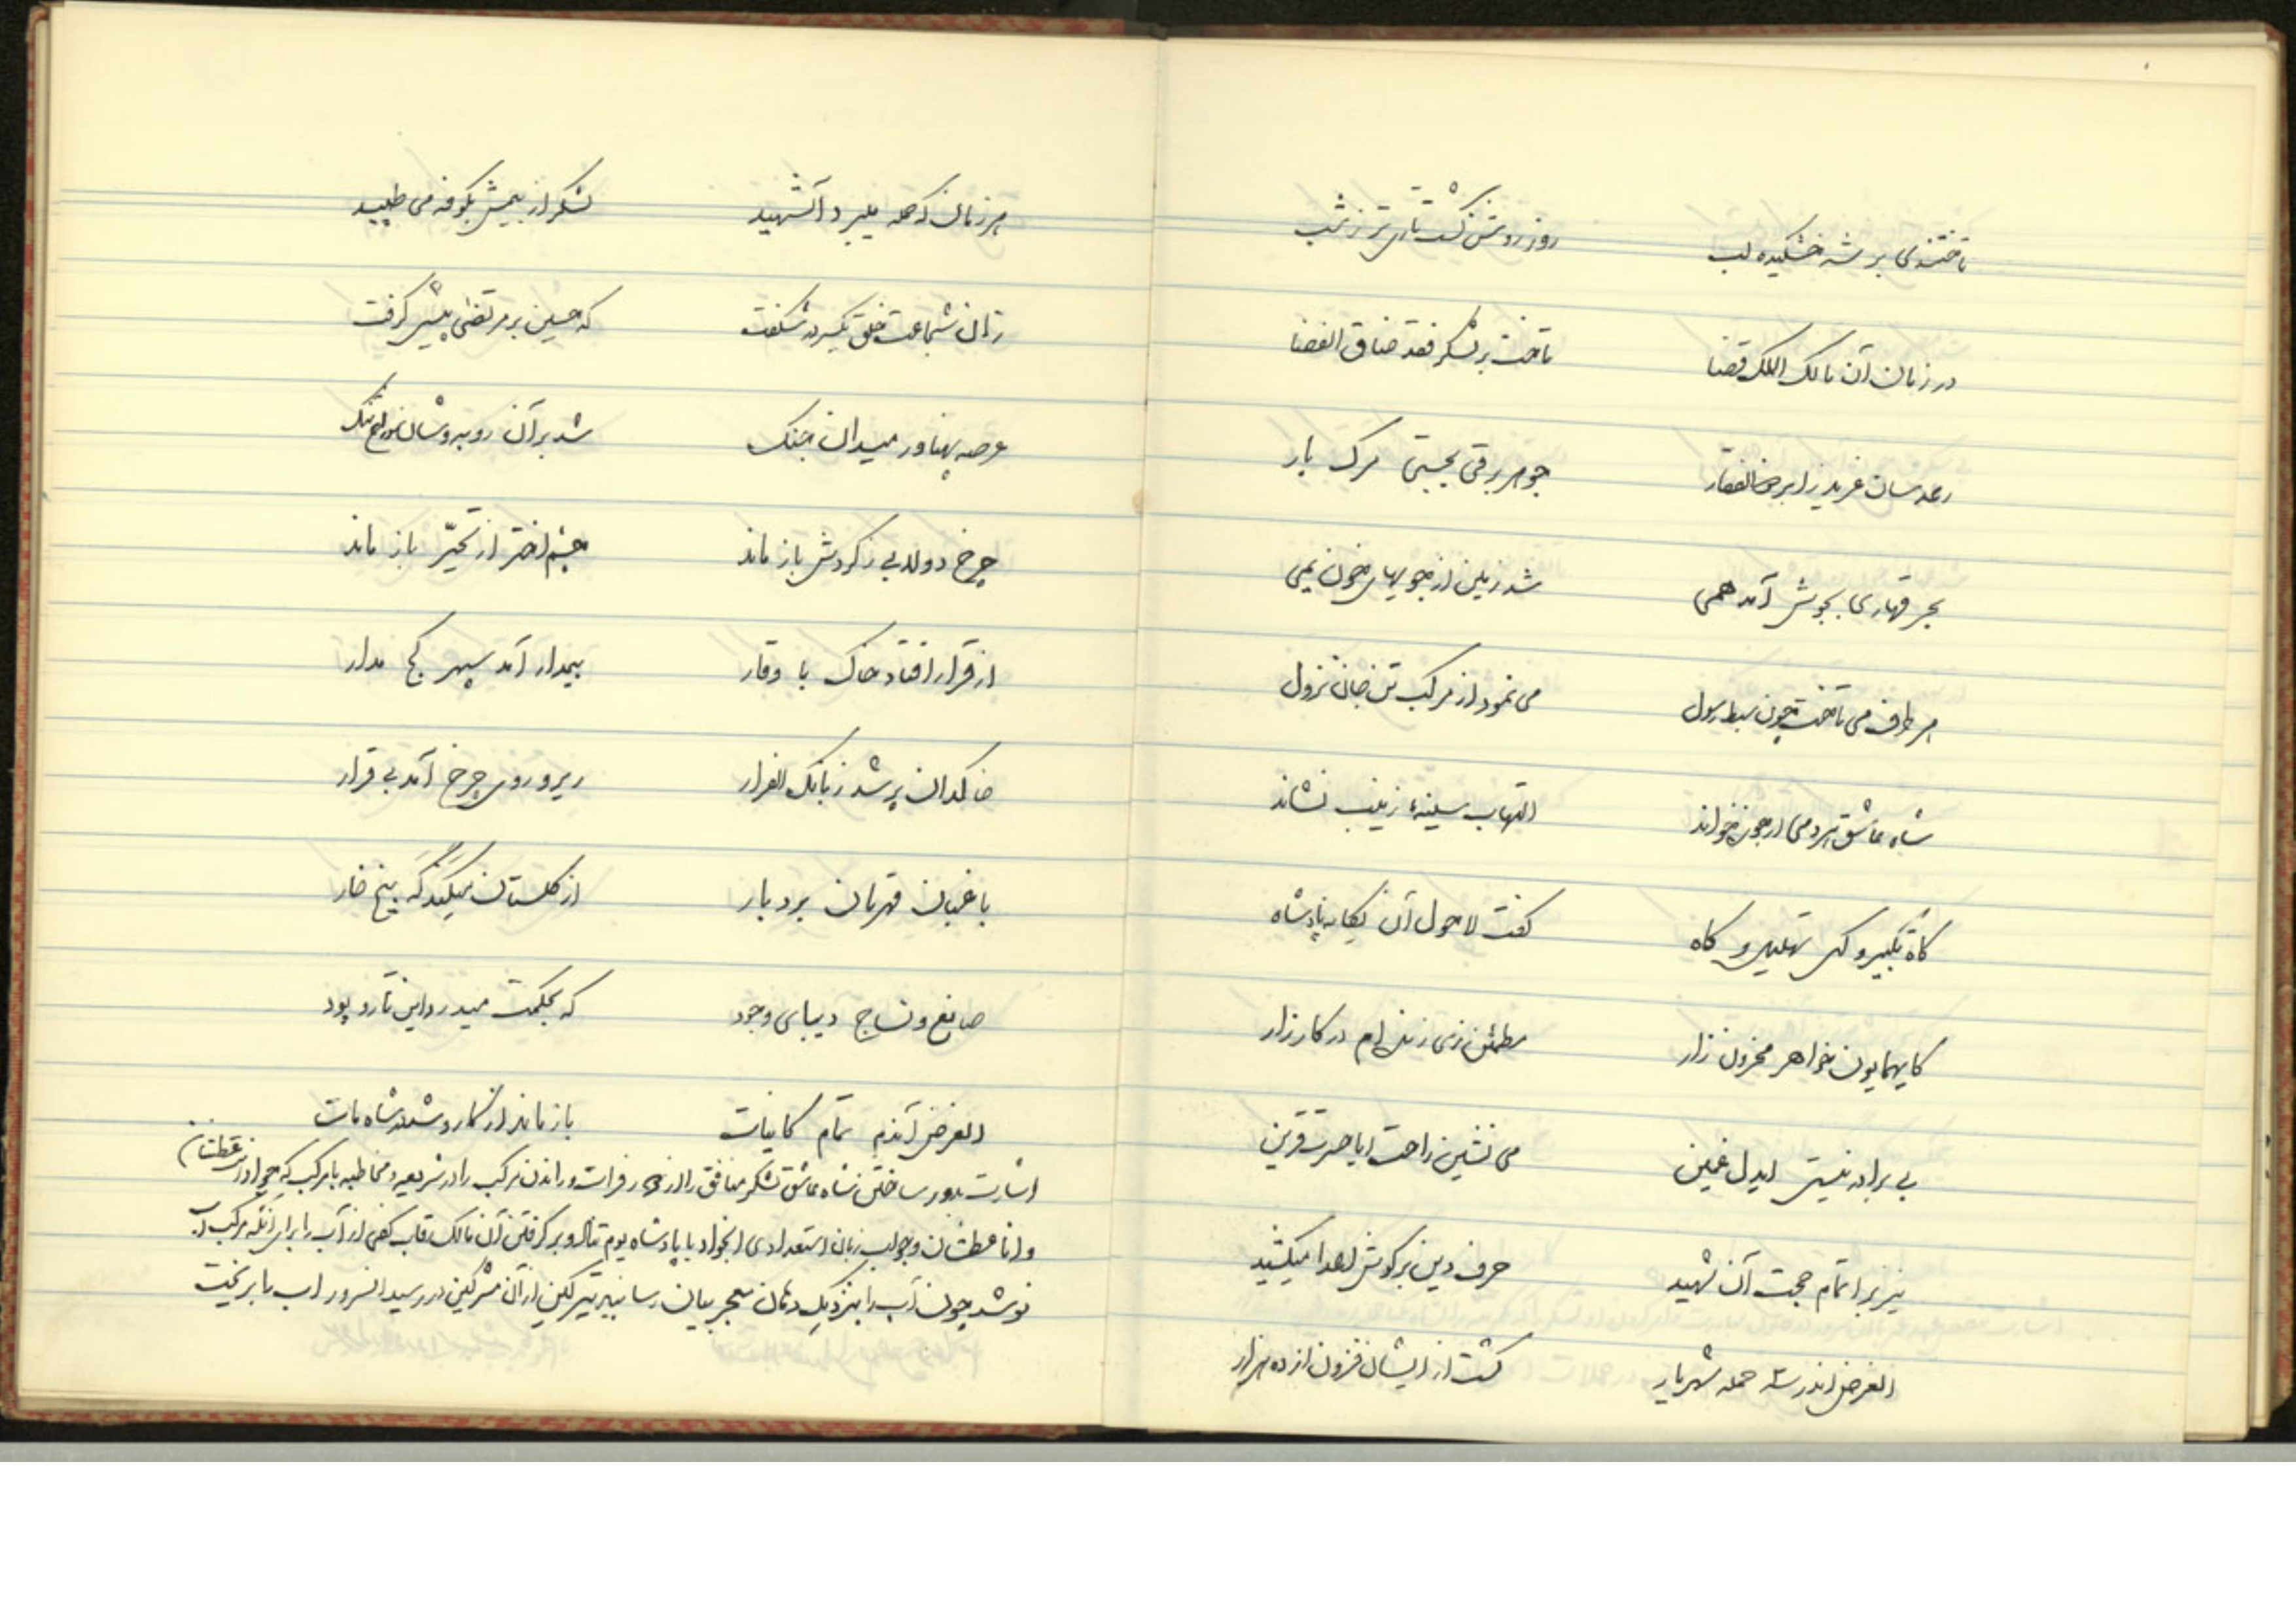 تاختندی بر شه خشکیده لب روز روشن گشت تاریتر ز شب
در زبان آن مالک الملک قضا تاخت بر لشکر فقد ضاق الفضا
رعد سان غرید زابر ذوالفقار جوهر برقی بجستی مرگ بار
بحر قهاری بجوش آمد همی شد زمین از جویهای خون یمی
هر طرف می تاخت چون سبط رسول می نمود از مرکب تن جان نزول
شاه عاشق هر دمی ارجوزه خواند التهاب سینهٔ زینب نشاند
گاه تکبیر و گهی تهلیل و گاه گفت لاحول آن یگانه پادشاه
کایهمایون خواهر محزون زار مطمئن زی زنده ام در کارزار
بی برادر نیستی ایدل غمین می نشین راحت ایا حسرت قرین
نیز بر اتمام حجت آن شهید حرف دین بر گوش اعدا میکشید
الغرض اندر سه حمله شهریار کشت از ایشان فزون از ده هزار
هر زمان که حمله میبرد آنشهید لشکر از بیمش بکوفه می طپید
زان شجاعت خلق یکسر در شگفت که حسین بر مرتضی پیشی گرفت
عرصه پهناور میدان جنگ شد بر آن روبه وشان سوراخ تنگ
چرخ دولابی ز گردش باز ماند چشم اختر از تحیّر باز ماند
از قرار افتاد خاک با وقار بیمدار آمد سپهر کج مدار
خاکدان پر شد ز بانگ الفرار زیر و روی چرخ آمد بی قرار
باغبان قهرمان بردبار از گلستان میکند گه بیخ خار
صانع و نساج دیبای وجود که بحکمت میدرد این تار و پود
الغرض آندم تمام کاینات باز ماند از کار و شد در شاه مات
اشارت بدور ساختن شاه عاشق لشکر منافق را از نهر فرات و راندن مرکب را در شریعه و مخاطبه با مرکب که ای جواد انت عطشان
و انا عطشان و جواب زبان استعدادی آنجواد با پادشاه یوم تناد و بر گرفتن آن مالک رقاب کفی از آب را برای آنکه مرکب آب
نوشد چون آب را بنزدیک دهان معجز بیان رسانید تیر کین از آن مشرکین در رسید آنسرور آب را بریخت